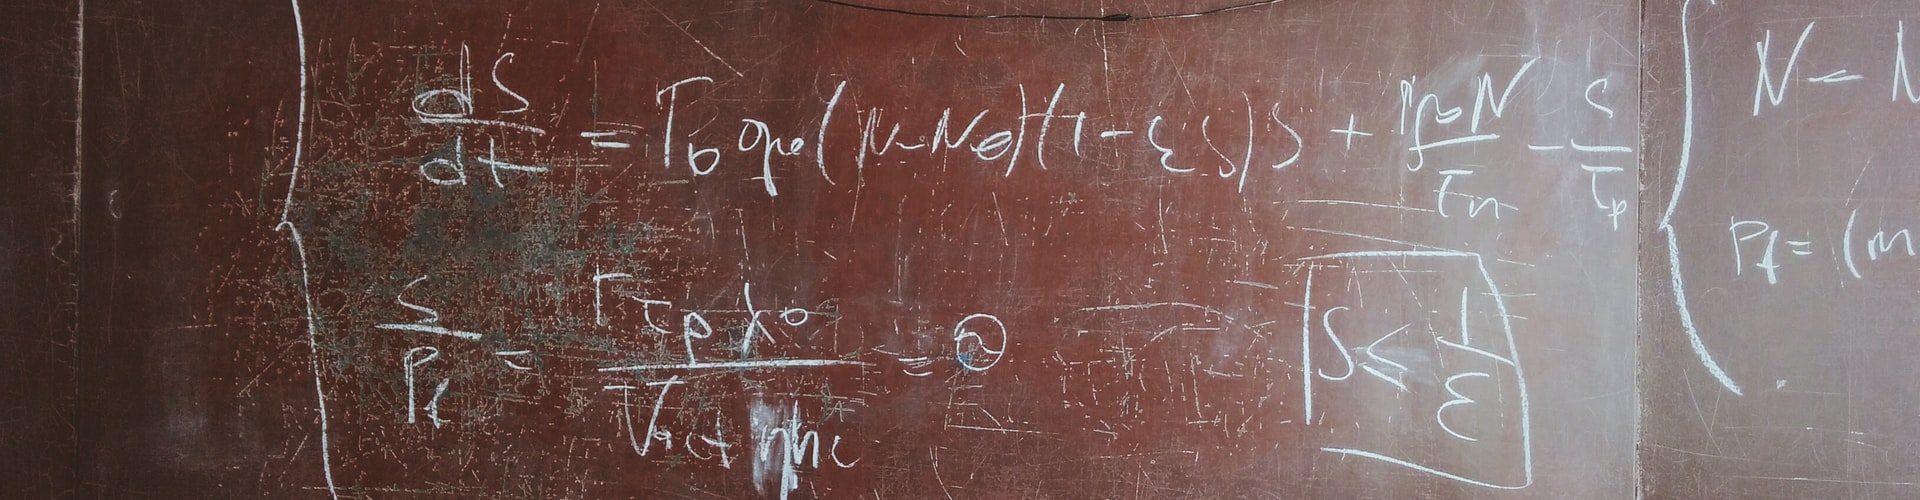 dS/dt = Γ₀ g₀ (N - N₀)(1 - εS)S + Γβ N/τₙ - S/τₚ
N = N
S/P_f = Γ τₚ λ₀ / V_act η h c = ②
S ≤ 1/ε
P_f = (m